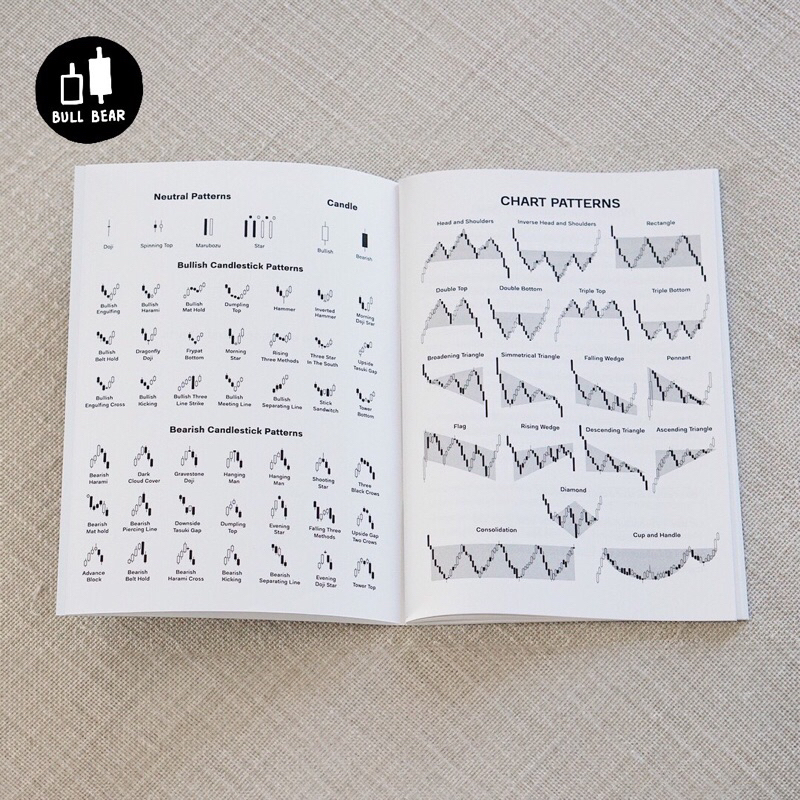 BULL BEAR
Neutral Patterns
Candle
Doji
Spinning Top
Marubozu
Star
Bullish
Bearish
Bullish Candlestick Patterns
Bullish
Engulfing
Bullish
Harami
Bullish
Mat Hold
Dumpling
Top
Hammer
Inverted
Hammer
Morning
Doji Star
Bullish
Belt Hold
Dragonfly
Doji
Frypat
Bottom
Morning
Star
Rising
Three Methods
Three Star
In The South
Upside
Tasuki Gap
Bullish
Engulfing Cross
Bullish
Kicking
Bullish Three
Line Strike
Bullish
Meeting Line
Bullish
Separating Line
Stick
Sandwitch
Tower
Bottom
Bearish Candlestick Patterns
Bearish
Harami
Dark
Cloud Cover
Gravestone
Doji
Hanging
Man
Hanging
Man
Shooting
Star
Three
Black Crows
Bearish
Mat hold
Bearish
Piercing Line
Downside
Tasuki Gap
Dumpling
Top
Evening
Star
Falling Three
Methods
Upside Gap
Two Crows
Advance
Block
Bearish
Belt Hold
Bearish
Harami Cross
Bearish
Kicking
Bearish
Separating Line
Evening
Doji Star
Tower Top
CHART PATTERNS
Head and Shoulders
Inverse Head and Shoulders
Rectangle
Double Top
Double Bottom
Triple Top
Triple Bottom
Broadening Triangle
Simmetrical Triangle
Falling Wedge
Pennant
Flag
Rising Wedge
Descending Triangle
Ascending Triangle
Diamond
Consolidation
Cup and Handle